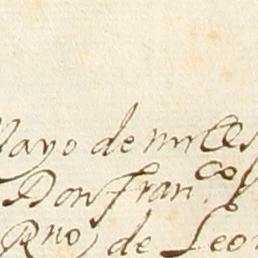 Mayo de mill
Don Fran.co
Rno de Leo